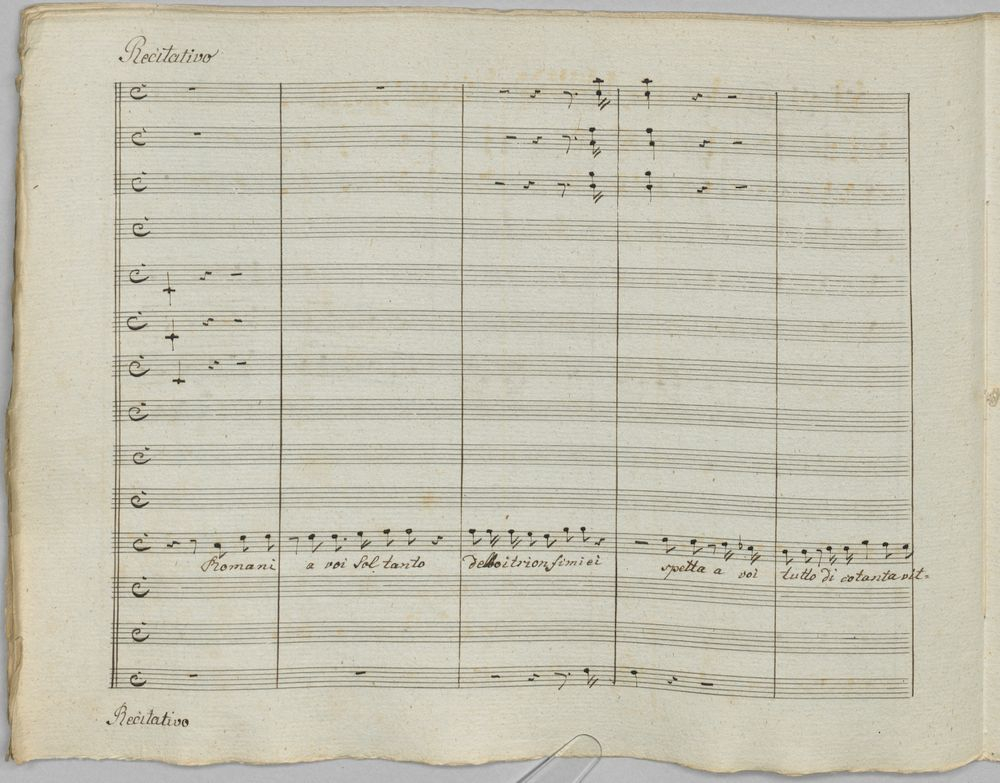 Recitativo
Romani a voi sol tanto debbo i trionfi miei spetta a voi tutto di cotanta vit=
Recitativo